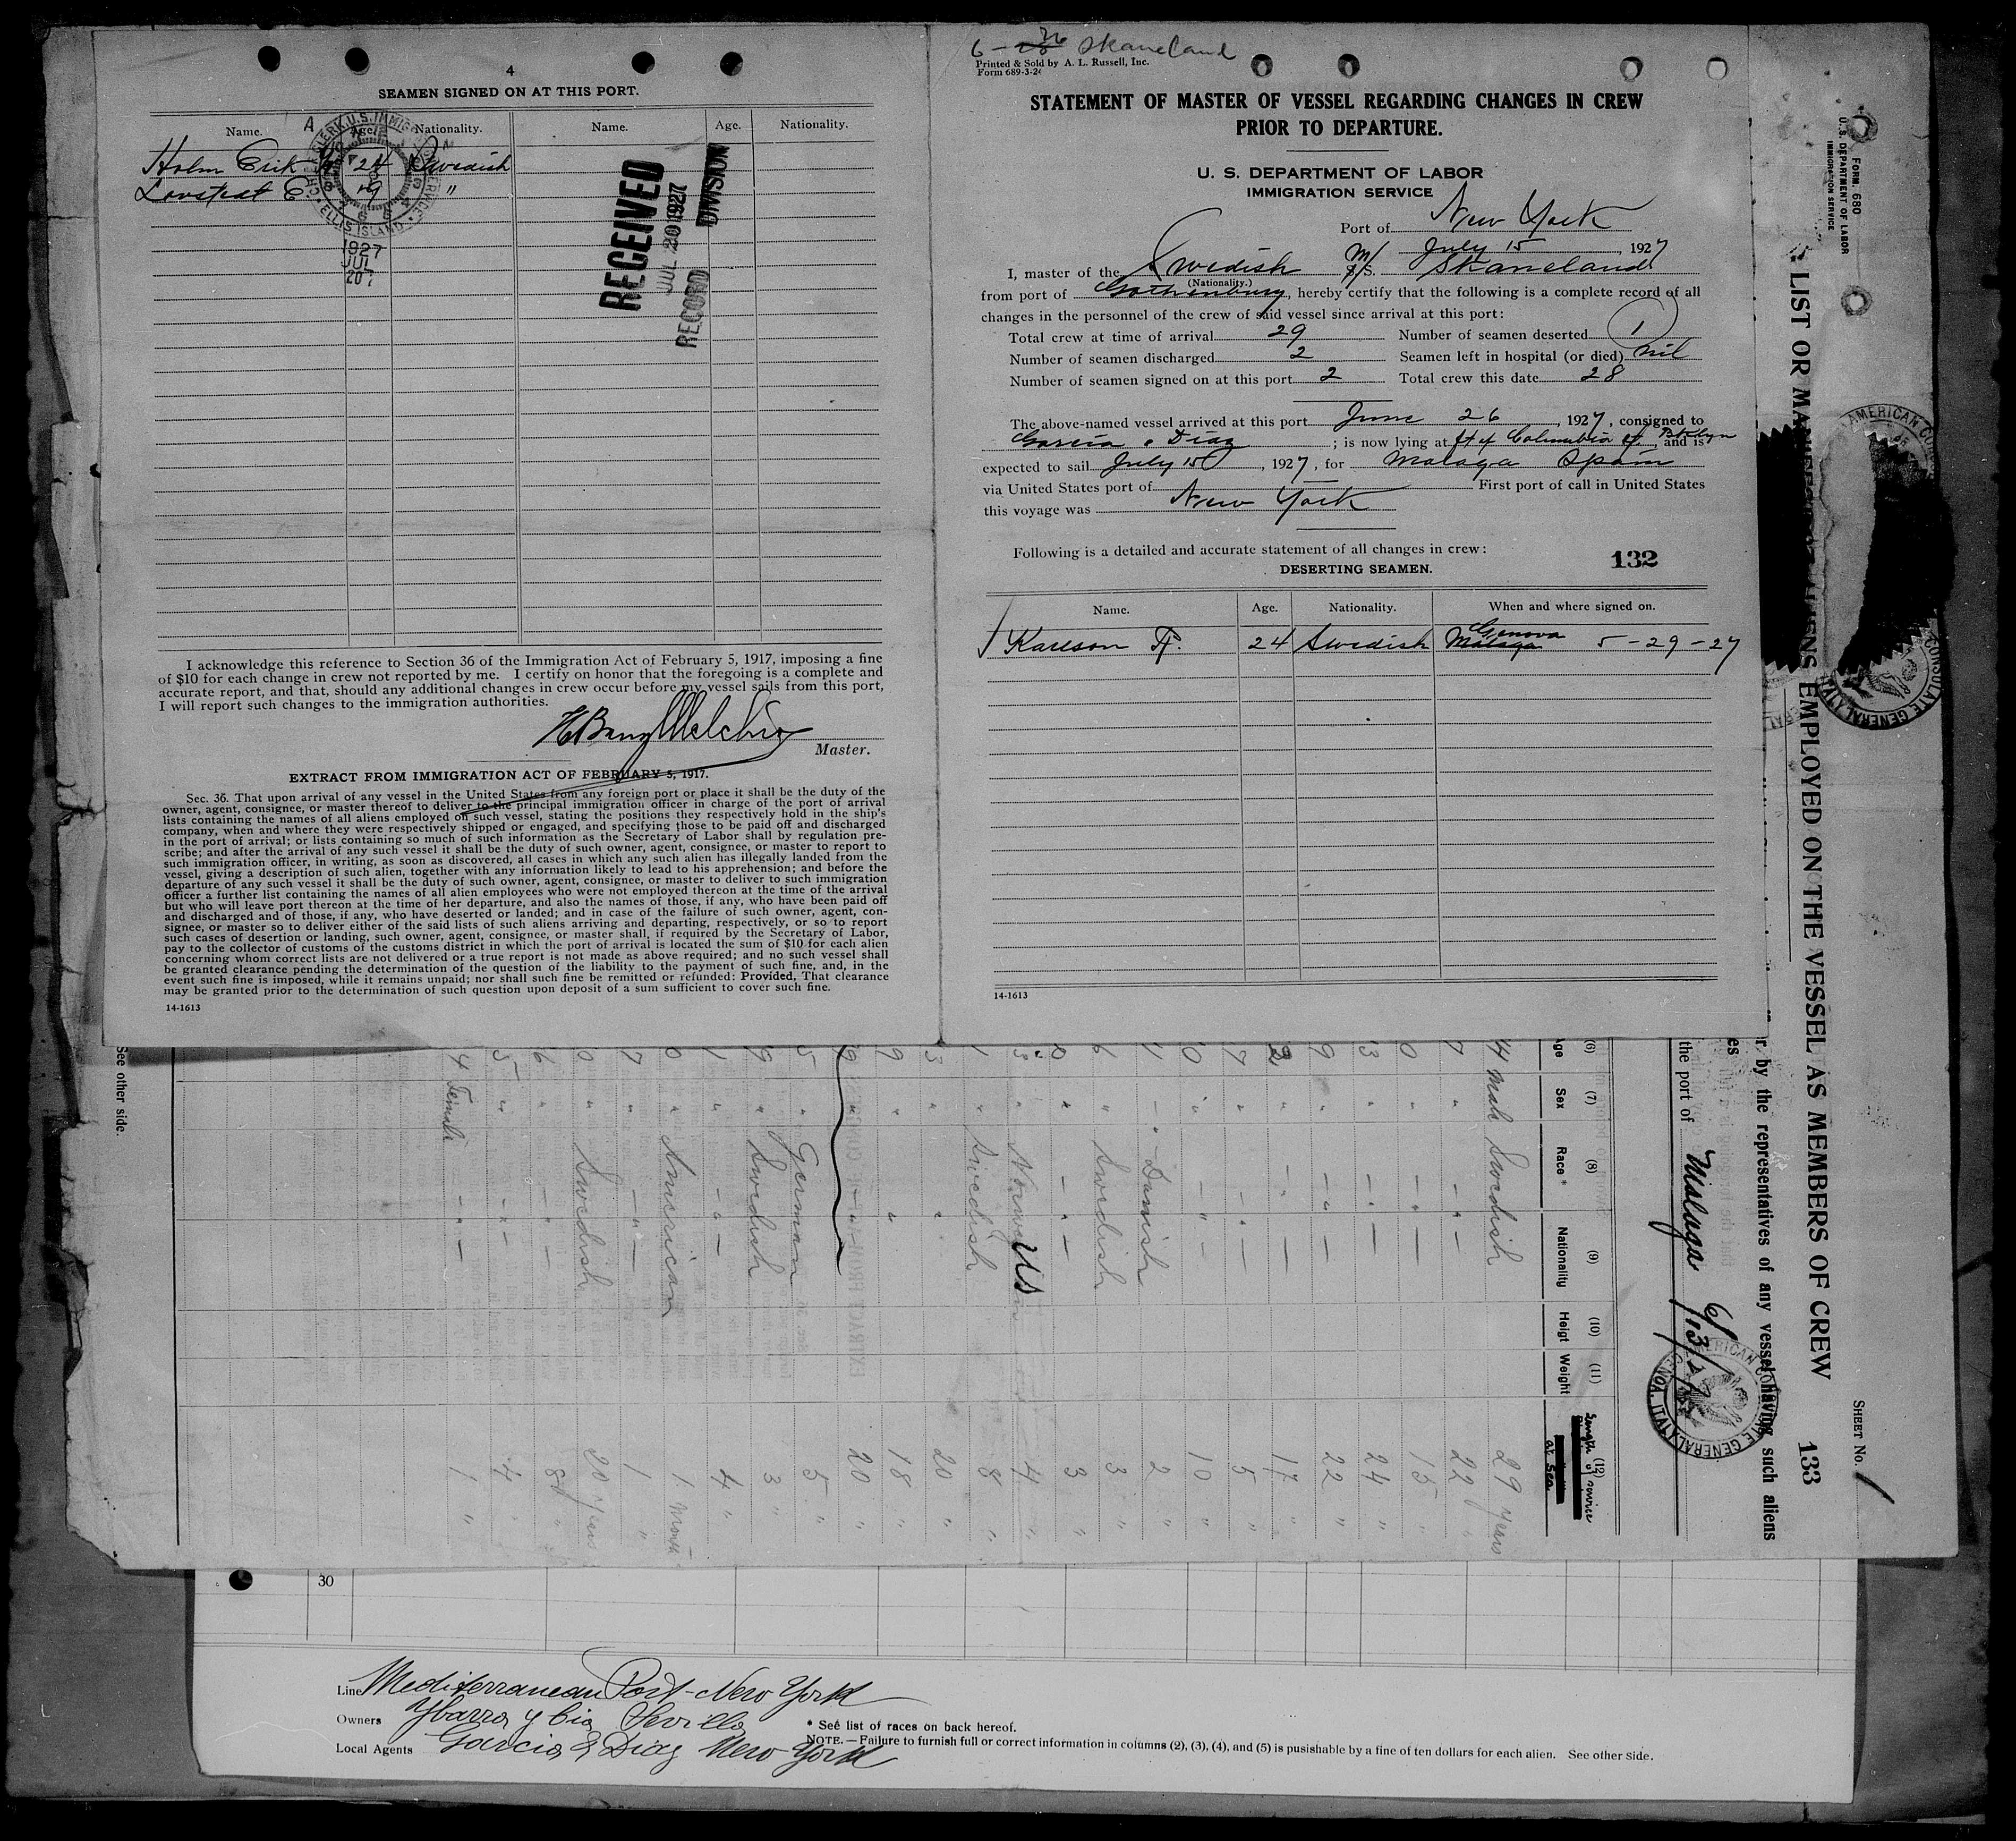 4
SEAMEN SIGNED ON AT THIS PORT.
Name. Age. Nationality. Name. Age. Nationality.
Holm Erik 24 Swedish
Lovstedt E. 19 "
U.S. IMMIGRATION SERVICE
ELLIS ISLAND
1927
JUL
20
RECEIVED
JUL 20 1927
RECORD DIVISION
I acknowledge this reference to Section 36 of the Immigration Act of February 5, 1917, imposing a fine
of $10 for each change in crew not reported by me. I certify on honor that the foregoing is a complete and
accurate report, and that, should any additional changes in crew occur before my vessel sails from this port,
I will report such changes to the immigration authorities.
Master.
EXTRACT FROM IMMIGRATION ACT OF FEBRUARY 5, 1917.
Sec. 36. That upon arrival of any vessel in the United States from any foreign port or place it shall be the duty of the
owner, agent, consignee, or master thereof to deliver to the principal immigration officer in charge of the port of arrival
lists containing the names of all aliens employed on such vessel, stating the positions they respectively hold in the ship's
company, when and where they were respectively shipped or engaged, and specifying those to be paid off and discharged
in the port of arrival; or lists containing so much of such information as the Secretary of Labor shall by regulation pre-
scribe; and after the arrival of any such vessel it shall be the duty of such owner, agent, consignee, or master to report to
such immigration officer, in writing, as soon as discovered, all cases in which any such alien has illegally landed from the
vessel, giving a description of such alien, together with any information likely to lead to his apprehension; and before the
departure of any such vessel it shall be the duty of such owner, agent, consignee, or master to deliver to such immigration
officer a further list containing the names of all alien employees who were not employed thereon at the time of the arrival
but who will leave port thereon at the time of her departure, and also the names of those, if any, who have been paid off
and discharged and of those, if any, who have deserted or landed; and in case of the failure of such owner, agent, con-
signee, or master so to deliver either of the said lists of such aliens arriving and departing, respectively, or so to report
such cases of desertion or landing, such owner, agent, consignee, or master shall, if required by the Secretary of Labor,
pay to the collector of customs of the customs district in which the port of arrival is located the sum of $10 for each alien
concerning whom correct lists are not delivered or a true report is not made as above required; and no such vessel shall
be granted clearance pending the determination of the question of the liability to the payment of such fine, and, in the
event such fine is imposed, while it remains unpaid; nor shall such fine be remitted or refunded: Provided, That clearance
may be granted prior to the determination of such question upon deposit of a sum sufficient to cover such fine.
14-1613
6 - 26 Skaneland
Printed & Sold by A. L. Russell, Inc.
Form 689-3-24
STATEMENT OF MASTER OF VESSEL REGARDING CHANGES IN CREW
PRIOR TO DEPARTURE.
U. S. DEPARTMENT OF LABOR
IMMIGRATION SERVICE
Port of New York
July 15, 1927
I, master of the Swedish M/S. Skaneland
(Nationality.)
from port of Gothenburg, hereby certify that the following is a complete record of all
changes in the personnel of the crew of said vessel since arrival at this port:
Total crew at time of arrival 29 Number of seamen deserted 1
Number of seamen discharged 2 Seamen left in hospital (or died) nil
Number of seamen signed on at this port 2 Total crew this date 28
The above-named vessel arrived at this port June 26, 1927, consigned to
Garcia & Diaz; is now lying at ft of Columbia st. Bklyn and is
expected to sail July 15, 1927, for Malaga Spain
via United States port of First port of call in United States
this voyage was New York
Following is a detailed and accurate statement of all changes in crew:
132
DESERTING SEAMEN.
Name. Age. Nationality. When and where signed on.
Karlson 24 Swedish Malaga Genova 5-29-27
14-1613
Form. 680
U. S. DEPARTMENT OF LABOR
IMMIGRATION SERVICE
LIST OR EMPLOYED ON THE VESSEL AS MEMBERS OF CREW
SHEET No. 1
133
AMERICAN CONSULATE GENERAL ITALY
by the representatives of any vessel having such aliens
the port of Malaga 6/13/27
AMERICAN CONSULATE GENERAL GENOA, ITALY
(6) (7) (8) (9) (10) (11) (12)
Age Sex Race * Nationality Heigt Weight Length of service at sea
4 Male Swedish 29 years
7 " 22 "
0 " 15 "
3 " 24 "
9 " 22 "
" 17 "
7 " 5 "
0 " 10 "
1 " Danish 2 "
6 " Swedish 3 "
" 3 "
" Norwegian US 4 "
1 " Swedish 8 "
3 " 20 "
9 " 18 "
9 " 20 "
5 " German 5 "
9 " Swedish 3 "
1 " 4 "
0 " American 1 Month
7 " 1 "
0 " Swedish 20 years
6 "
5 " 4 "
4 Female 1 "
See other side.
30
Line Mediterranean Port - New York
Owners Ybarra y Cia, Sevilla
Local Agents Garcia & Diaz New York
* See list of races on back hereof.
NOTE.—Failure to furnish full or correct information in columns (2), (3), (4), and (5) is pusishable by a fine of ten dollars for each alien. See other side.